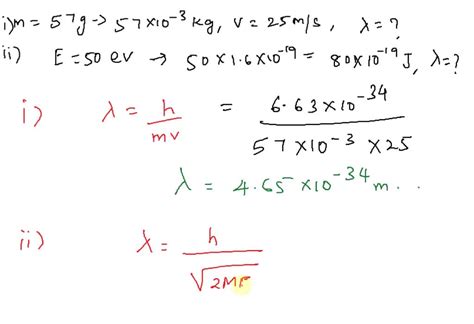 i) m = 57g -> 57×10⁻³ kg, v = 25m/s, λ = ?
ii) E = 50 ev → 50×1.6×10⁻¹⁹ = 80×10⁻¹⁹ J, λ=?
i) λ = h / mv = 6.63×10⁻³⁴ / 57×10⁻³ ×25
λ = 4.65×10⁻³⁴ m . .
ii) λ = h / √2ME